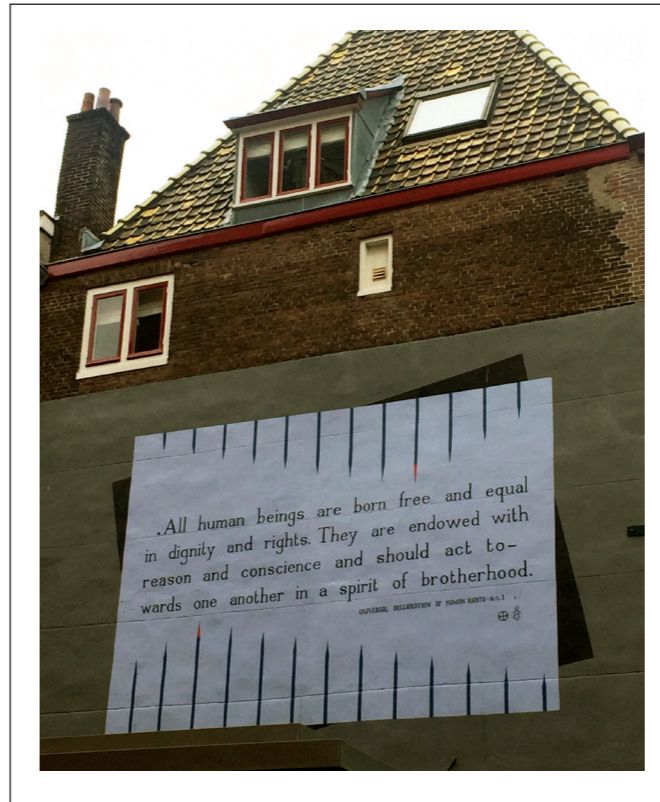 .All human beings are born free and equal
in dignity and rights. They are endowed with
reason and conscience and should act to-
wards one another in a spirit of brotherhood.
UNIVERSAL DECLARATION OF HUMAN RIGHTS-Art.1